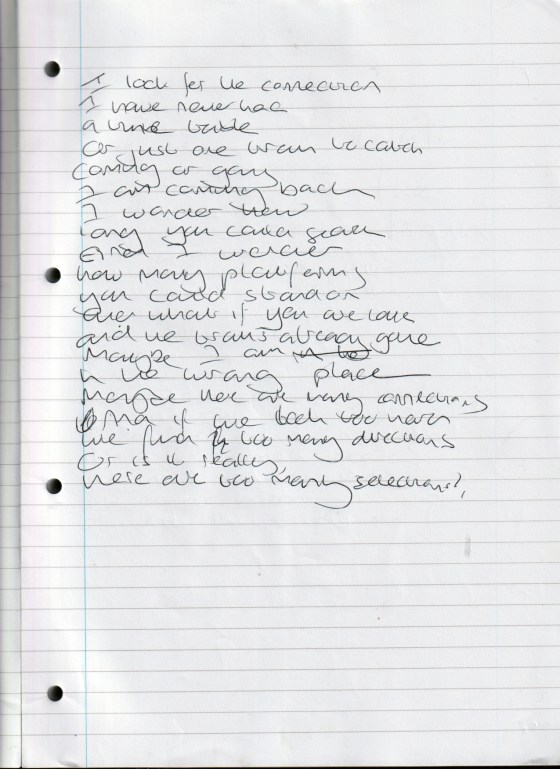 I look for the connection
I have never had
a time table
Or just one train to catch
Coming or going
I am coming back
I wonder how
long you could search
And I wonder
how many platforms
you could stand on
and what if you are late
and the train's already gone
Maybe I am
in the wrong place
Maybe there are many connections
And if we look too hard
We find too many directions
Or is it really,
there are too many selections?,